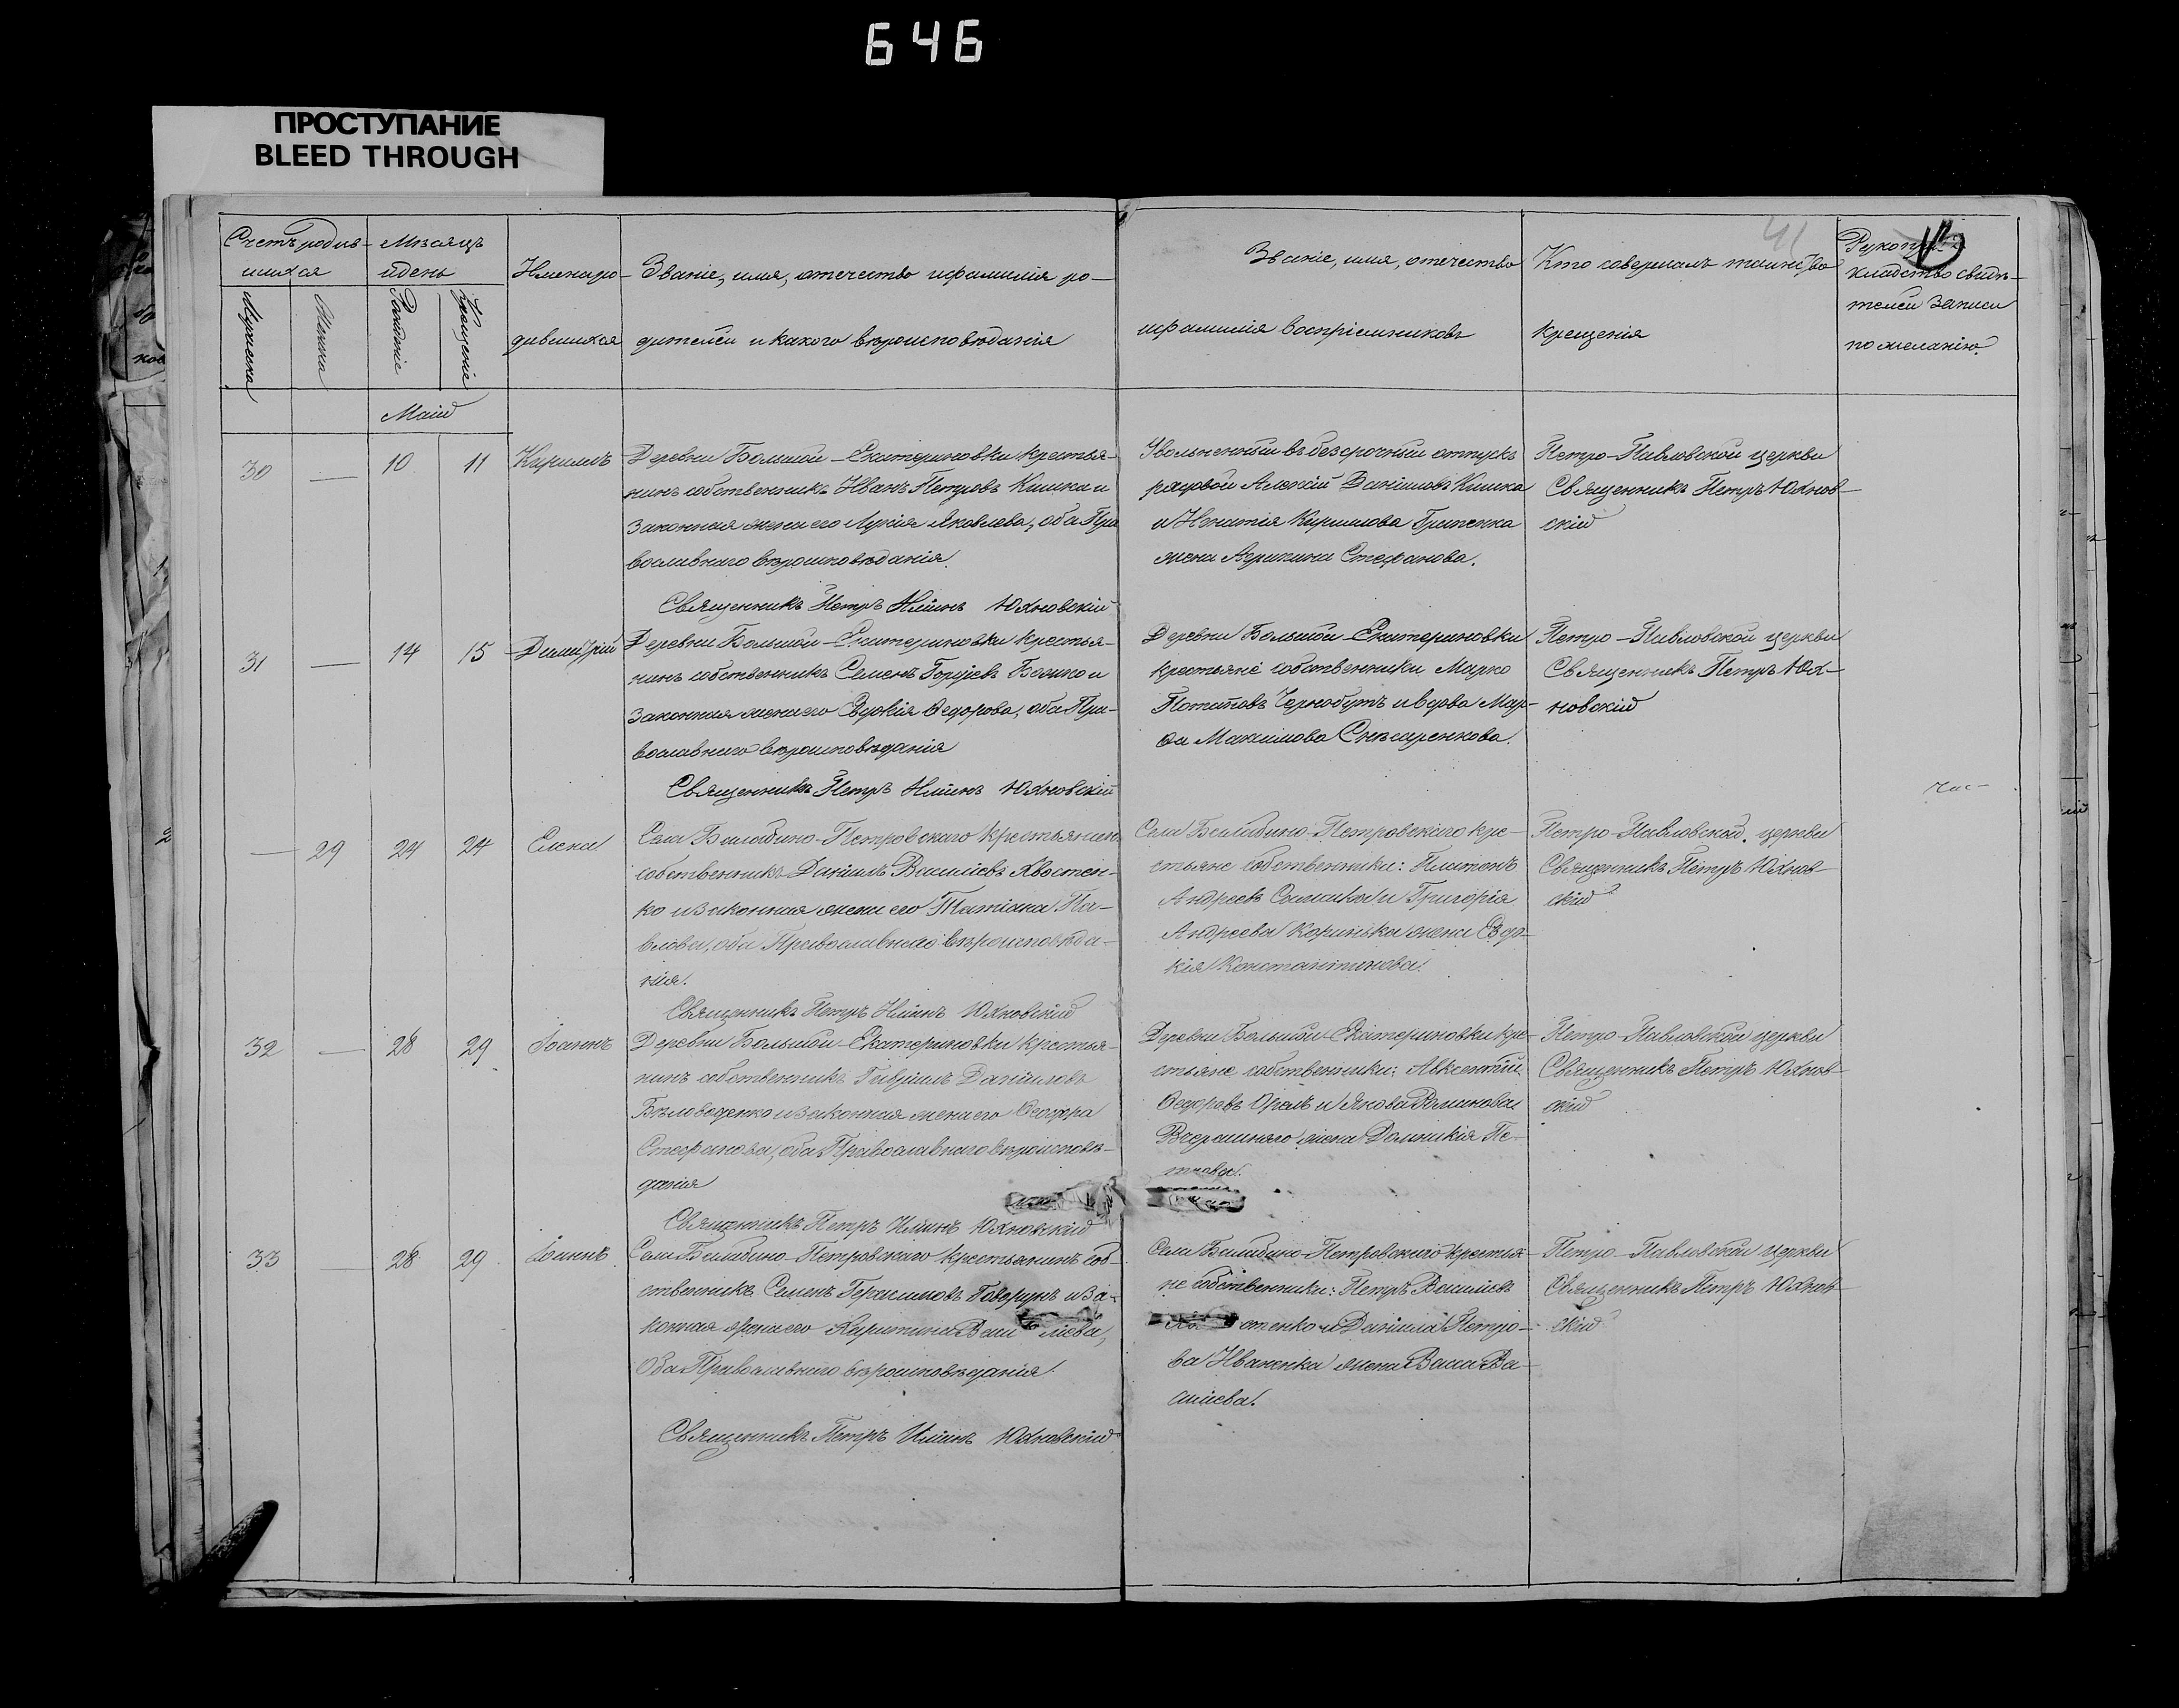 646
ПРОСТУПАНИЕ
BLEED THROUGH
41
Счетъ родив-
шихся
Мужеска
Женска
Мѣсяцъ
и день
Рожденіе
Крещеніе
Имена ро-
дившихся
Званіе, имя, отечество и фамилія ро-
дителей и какого вѣроисповѣданія
Званіе, имя, отечество
и фамилія воспріемниковъ
Кто совершалъ таинство
крещенія
Рукопри-
кладство свидѣ-
телей записи
по желанію.
Маій
30 — 10 11 Кириллъ
Деревни Большой-Екатериновки крестья-
нинъ собственникъ Иванъ Петровъ Кишка и
законная жена его Лукія Яковлева, оба Пра
вославнаго вѣроисповѣданія.
Священникъ Петръ Юхновскій
Уволненный въ безсрочный отпускъ
рядовой Алексій Даніиловъ Кишка
и Игнатія Кириллова Гриценка
жена Агрипина Стефанова.
Петро-Павловской церкви
Священникъ Петръ Юхнов-
скій
31 — 14 15 Димитрій
Деревни Большой-Екатериновки крестья-
нинъ собственникъ Семенъ и
законная жена его Евдокія Ѳедорова, оба Пра-
вославнаго вѣроисповѣданія
Священникъ Петръ Юхновскій
Деревни Большой Екатериновки
крестьяне собственники Марко
Потаповъ Чернобутъ и вдова Мар-
фа Максимова Снѣсаренкова.
Петро-Павловской церкви
Священникъ Петръ Юх-
новскій
— 29 24 24 Елена
Села Белабино-Петровскаго крестьянин
собственникъ Даніилъ Василіевъ Хвостен-
ко и законная жена его Татіана Па-
влова, оба Православнаго вѣроисповѣда-
нія.
Священникъ Петръ Юхновскій
Села Белабино-Петровскаго кре-
стьяне собственники: Платонъ
Андреевъ и Григорія
Андреева жена Евдо-
кія Константинова.
Петро-Павловской церкви
Священникъ Петръ Юхнов-
скій
32 — 28 29 Іоаннъ
Деревни Большой-Екатериновки крестья-
нинъ собственникъ Гавріилъ Даніиловъ
Бѣловоденко и законная жена его Ѳеодора
Стефанова, оба Православнаго вѣроисповѣ-
данія
Священникъ Петръ Юхновскій
Деревни Большой Екатериновки кре-
стьяне собственники: Авксентій
Ѳедоровъ Орелъ и Якова
Вчерашняго жена Домникія Пе-
трова.
Петро-Павловской церкви
Священникъ Петръ Юхнов-
скій
33 — 28 29 Іоаннъ
Села Белабино-Петровскаго крестьянинъ соб-
ственникъ Семенъ Герасимовъ Говорунъ и за-
конная жена его Харитина Васи ліева,
оба Православнаго вѣроисповѣданія.
Священникъ Петръ Юхновскій
Села Белабино-Петровскаго крестья-
не собственники: Петръ Василіевъ
стенко и Даніила Петро-
ва Иваненка жена Васса Ва-
силіева.
Петро-Павловской церкви
Священникъ Петръ Юхнов-
скій